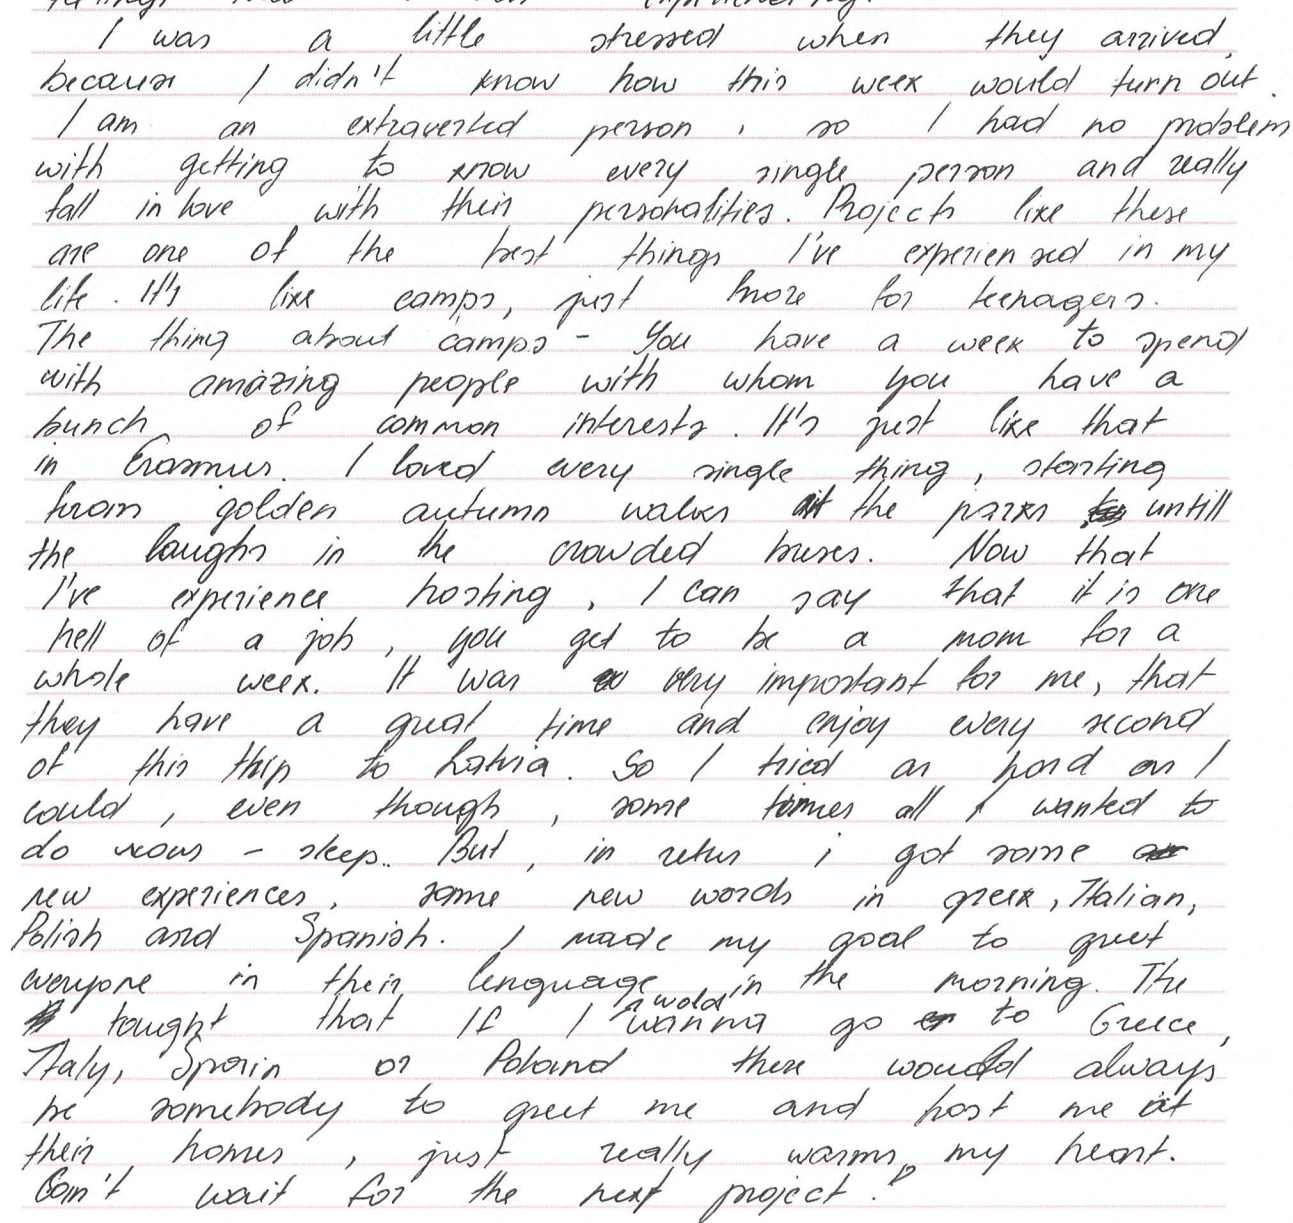 I was a little stressed when they arrived,
because I didn't know how this week would turn out.
I am an extraverted person, so I had no problem
with getting to know every single person and really
fall in love with their personalities. Projects like these
are one of the best things I've experiensed in my
life. It's like camps, just more for teenagers.
The thing about camps - You have a week to spend
with amazing people with whom you have a
bunch of common interests. It's just like that
in Erasmus. I loved every single thing, starting
from golden autumn walks at the parks untill
the laughs in the crowded buses. Now that
I've experience hosting, I can say that it is one
hell of a job, you get to be a mom for a
whole week. It was very important for me, that
they have a great time and enjoy every second
of this thip to Latvia. So I tried as hard as I
could, even though, some times all I wanted to
do was - sleep.. But, in retur i got some
new experiences, some new words in greek, Italian,
Polish and Spanish. I made my goal to greet
everyone in their lenguage in the morning. The
tought that If I wold wanna go to Greece,
Italy, Spain or Poland there would always
be somebody to greet me and host me at
their homes, just really warms my heart.
Can't wait for the next project!